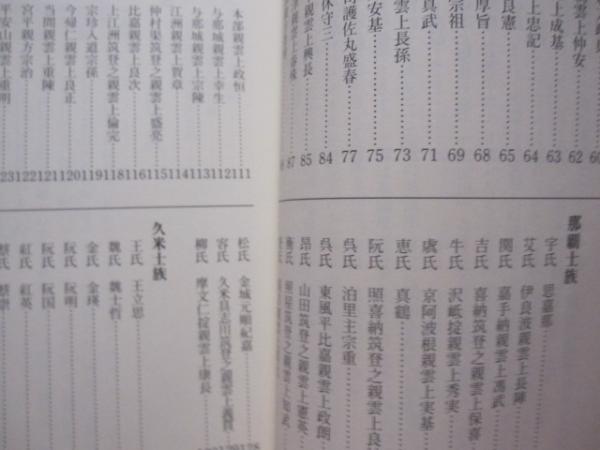 仲安……62
上成基……63
上忠記……64
良憲……65
厚旨……68
宗祖……69
真武……71
雲上長孫……73
安基……75
護佐丸盛春……77
休守三……84
親雲上興長……85
87
那覇士族
宇氏 思嘉那……
艾氏 伊良波親雲上長陣……
関氏 嘉手納親雲上憑武……
吉氏 喜納筑登之親雲上保喜……
牛氏 沢岻掟親雲上秀実……
虞氏 京阿波根親雲上実基……
恵氏 真鶴……
阮氏 照喜納筑登之親雲上良……
呉氏 泊里主宗重……
呉氏 東風平比嘉親雲上政朗……
昂氏 山田筑登之親雲上憲英……
本部親雲上政恒……111
与那城親雲上幸生……112
与那城親雲上宗陳……113
江洲親雲上賀章……114
仲村渠筑登之親雲上盛亮……115
比嘉親雲上良次……116
上江洲筑登之親雲上倫完……118
宗珍入道宗孫……119
今帰仁親雲上良正……120
当間親雲上重陳……121
宮平親方宗治……122
平安山親雲上重明……123
松氏 金城元顕紀嘉……
容氏 久米具志川筑登之親雲上義賢……
柳氏 摩文仁掟親雲上康長……
久米士族
王氏 王立思……
魏氏 魏士哲……
金氏 金瑛……
阮氏 阮明……
阮氏 阮国……
紅氏 紅英……
蔡氏 蔡崇……